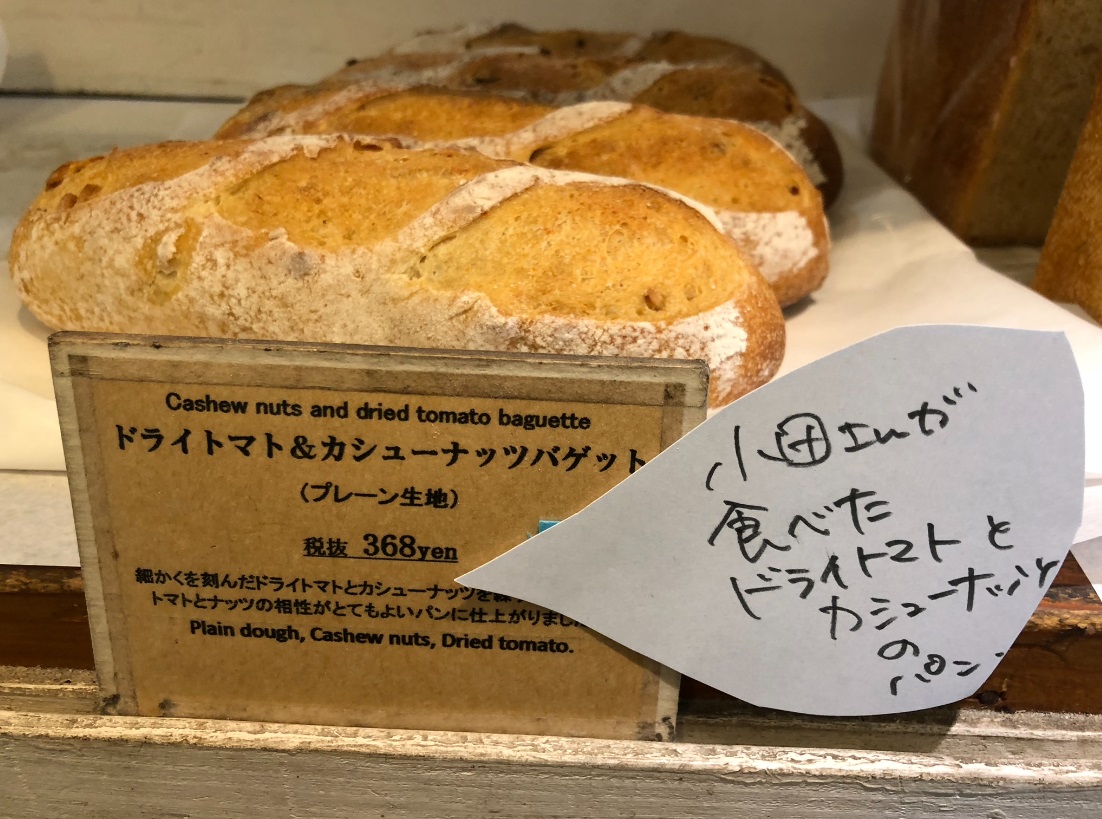 Cashew nuts and dried tomato baguette
ドライトマト&カシューナッツバゲット
(プレーン生地)
税抜 368yen
細かくを刻んだドライトマトとカシューナッツを
トマトとナッツの相性がとてもよいパンに仕上がりまし
Plain dough, Cashew nuts, Dried tomato.
が
食べた
ドライトマトと
カシューナッツ
のパン